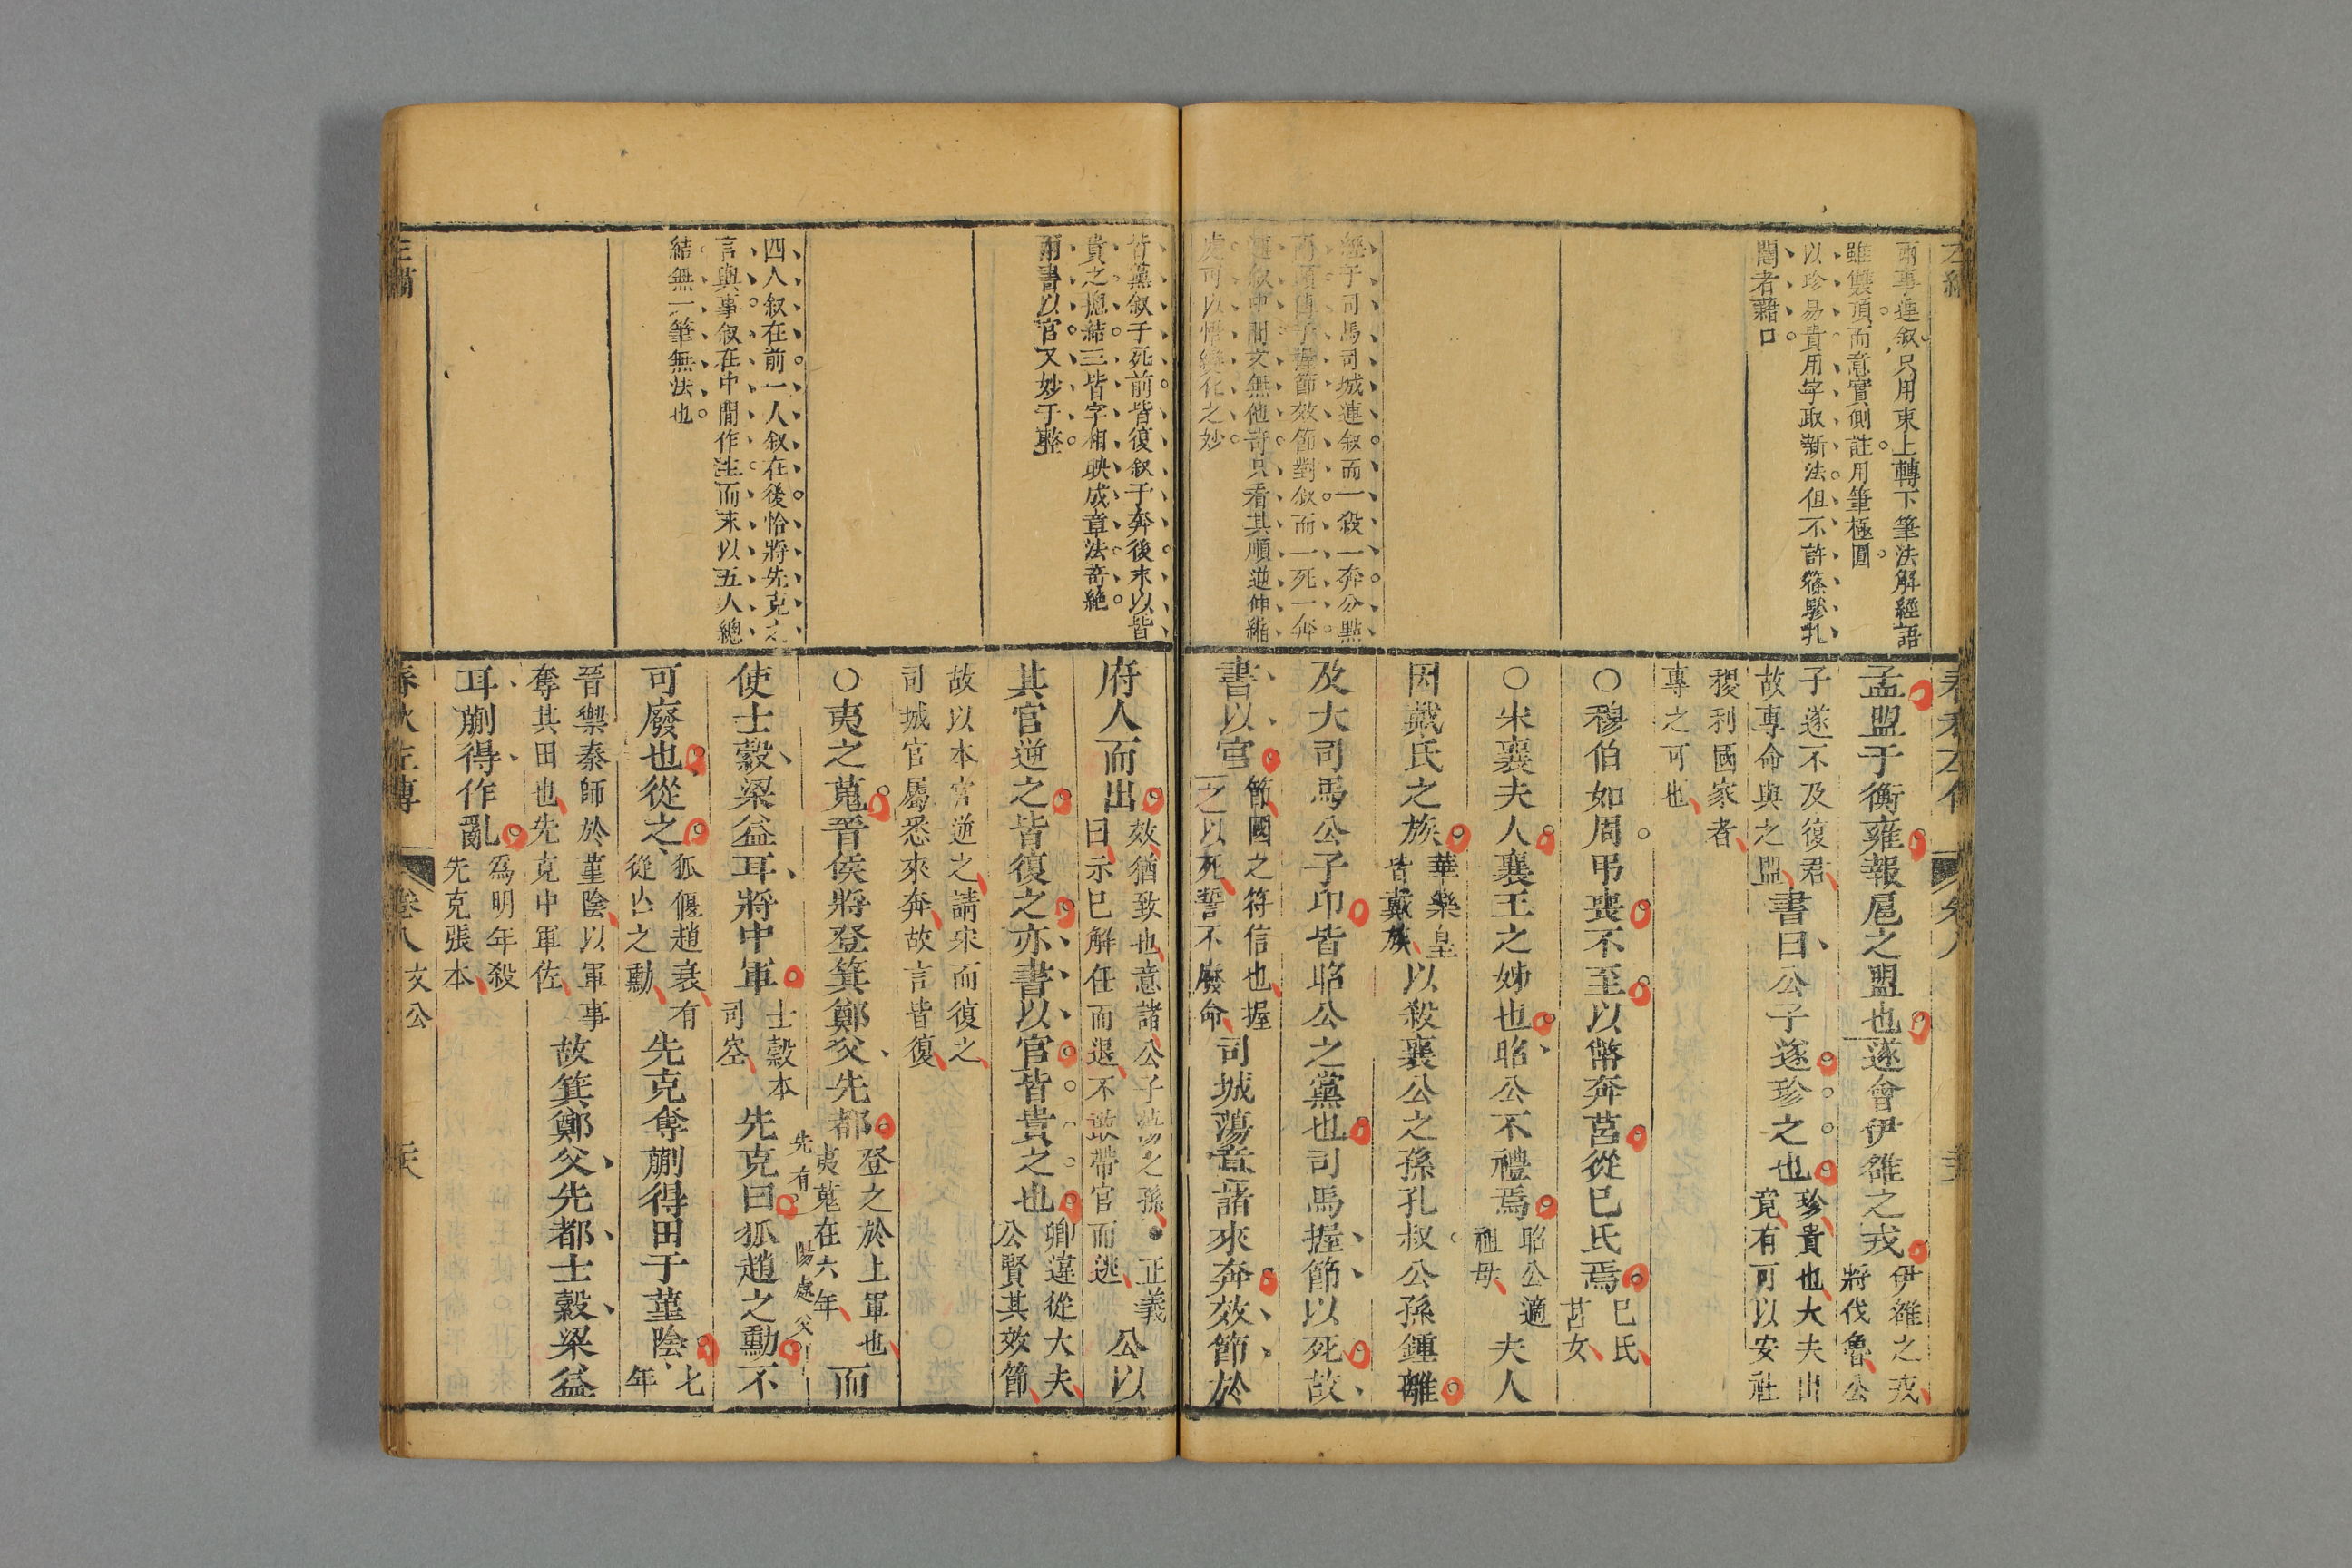 兩事連叙只用束上轉下筆法解經語
雖雙頂而意實側註用筆極圓
以珍易貴用字取新法但不許篠驂孔
閣者藉口
經于司馬司城連叙而一殺一奔分點
而頂傳于握節效節對叙而一死一奔
連叙中間文無他奇只看其順逆伸縮
處可以悟變化之妙
孟盟于衡雍報扈之盟也遂會伊雒之戎
伊雒之戎
將伐魯公
子遂不及復君
故專命與之盟
書曰公子遂珍之也
珍貴也大夫出
竟有可以安社
稷利國家者
專之可也
○穆伯如周弔喪不至以幣奔莒從巳氏焉
巳氏
莒女
○宋襄夫人襄王之姊也昭公不禮焉
昭公適
祖母
夫人
因戴氏之族
華樂皇
皆戴族
以殺襄公之孫孔叔公孫鍾離
及大司馬公子卬皆昭公之黨也司馬握節以死故
書以官
節國之符信也握
之以死誓不廢命
司城蕩意諸來奔效節於
皆黨叙于死前皆復叙于奔後末以皆
貴之總結三皆字相映成章法奇絶
兩書以官又妙于整
四人叙在前一人叙在後恰將先克之
言與事叙在中間作主而末以五人總
結無一筆無法也
府人而出
效猶致也意諸公子蕩之孫
正義
曰示已解任而退不敢帶官而逃
公以
其官逆之皆復之亦書以官皆貴之也
卿違從大夫
公賢其效節
故以本官逆之請宋而復之
司城官屬悉來奔故言皆復
○夷之蒐晉侯將登箕鄭父先都
登之於上軍也
夷蒐在六年
而
先有
陽處父
使士縠梁益耳將中軍
士縠本
司空
先克曰狐趙之勳不
可廢也從之
狐偃趙衰有
從亡之勳
先克奪蒯得田于堇陰
七
年
晉禦秦師於堇陰以軍事
奪其田也先克中軍佐
故箕鄭父先都士縠梁益
耳蒯得作亂
為明年殺
先克張本
春秋左傳
卷八
文公